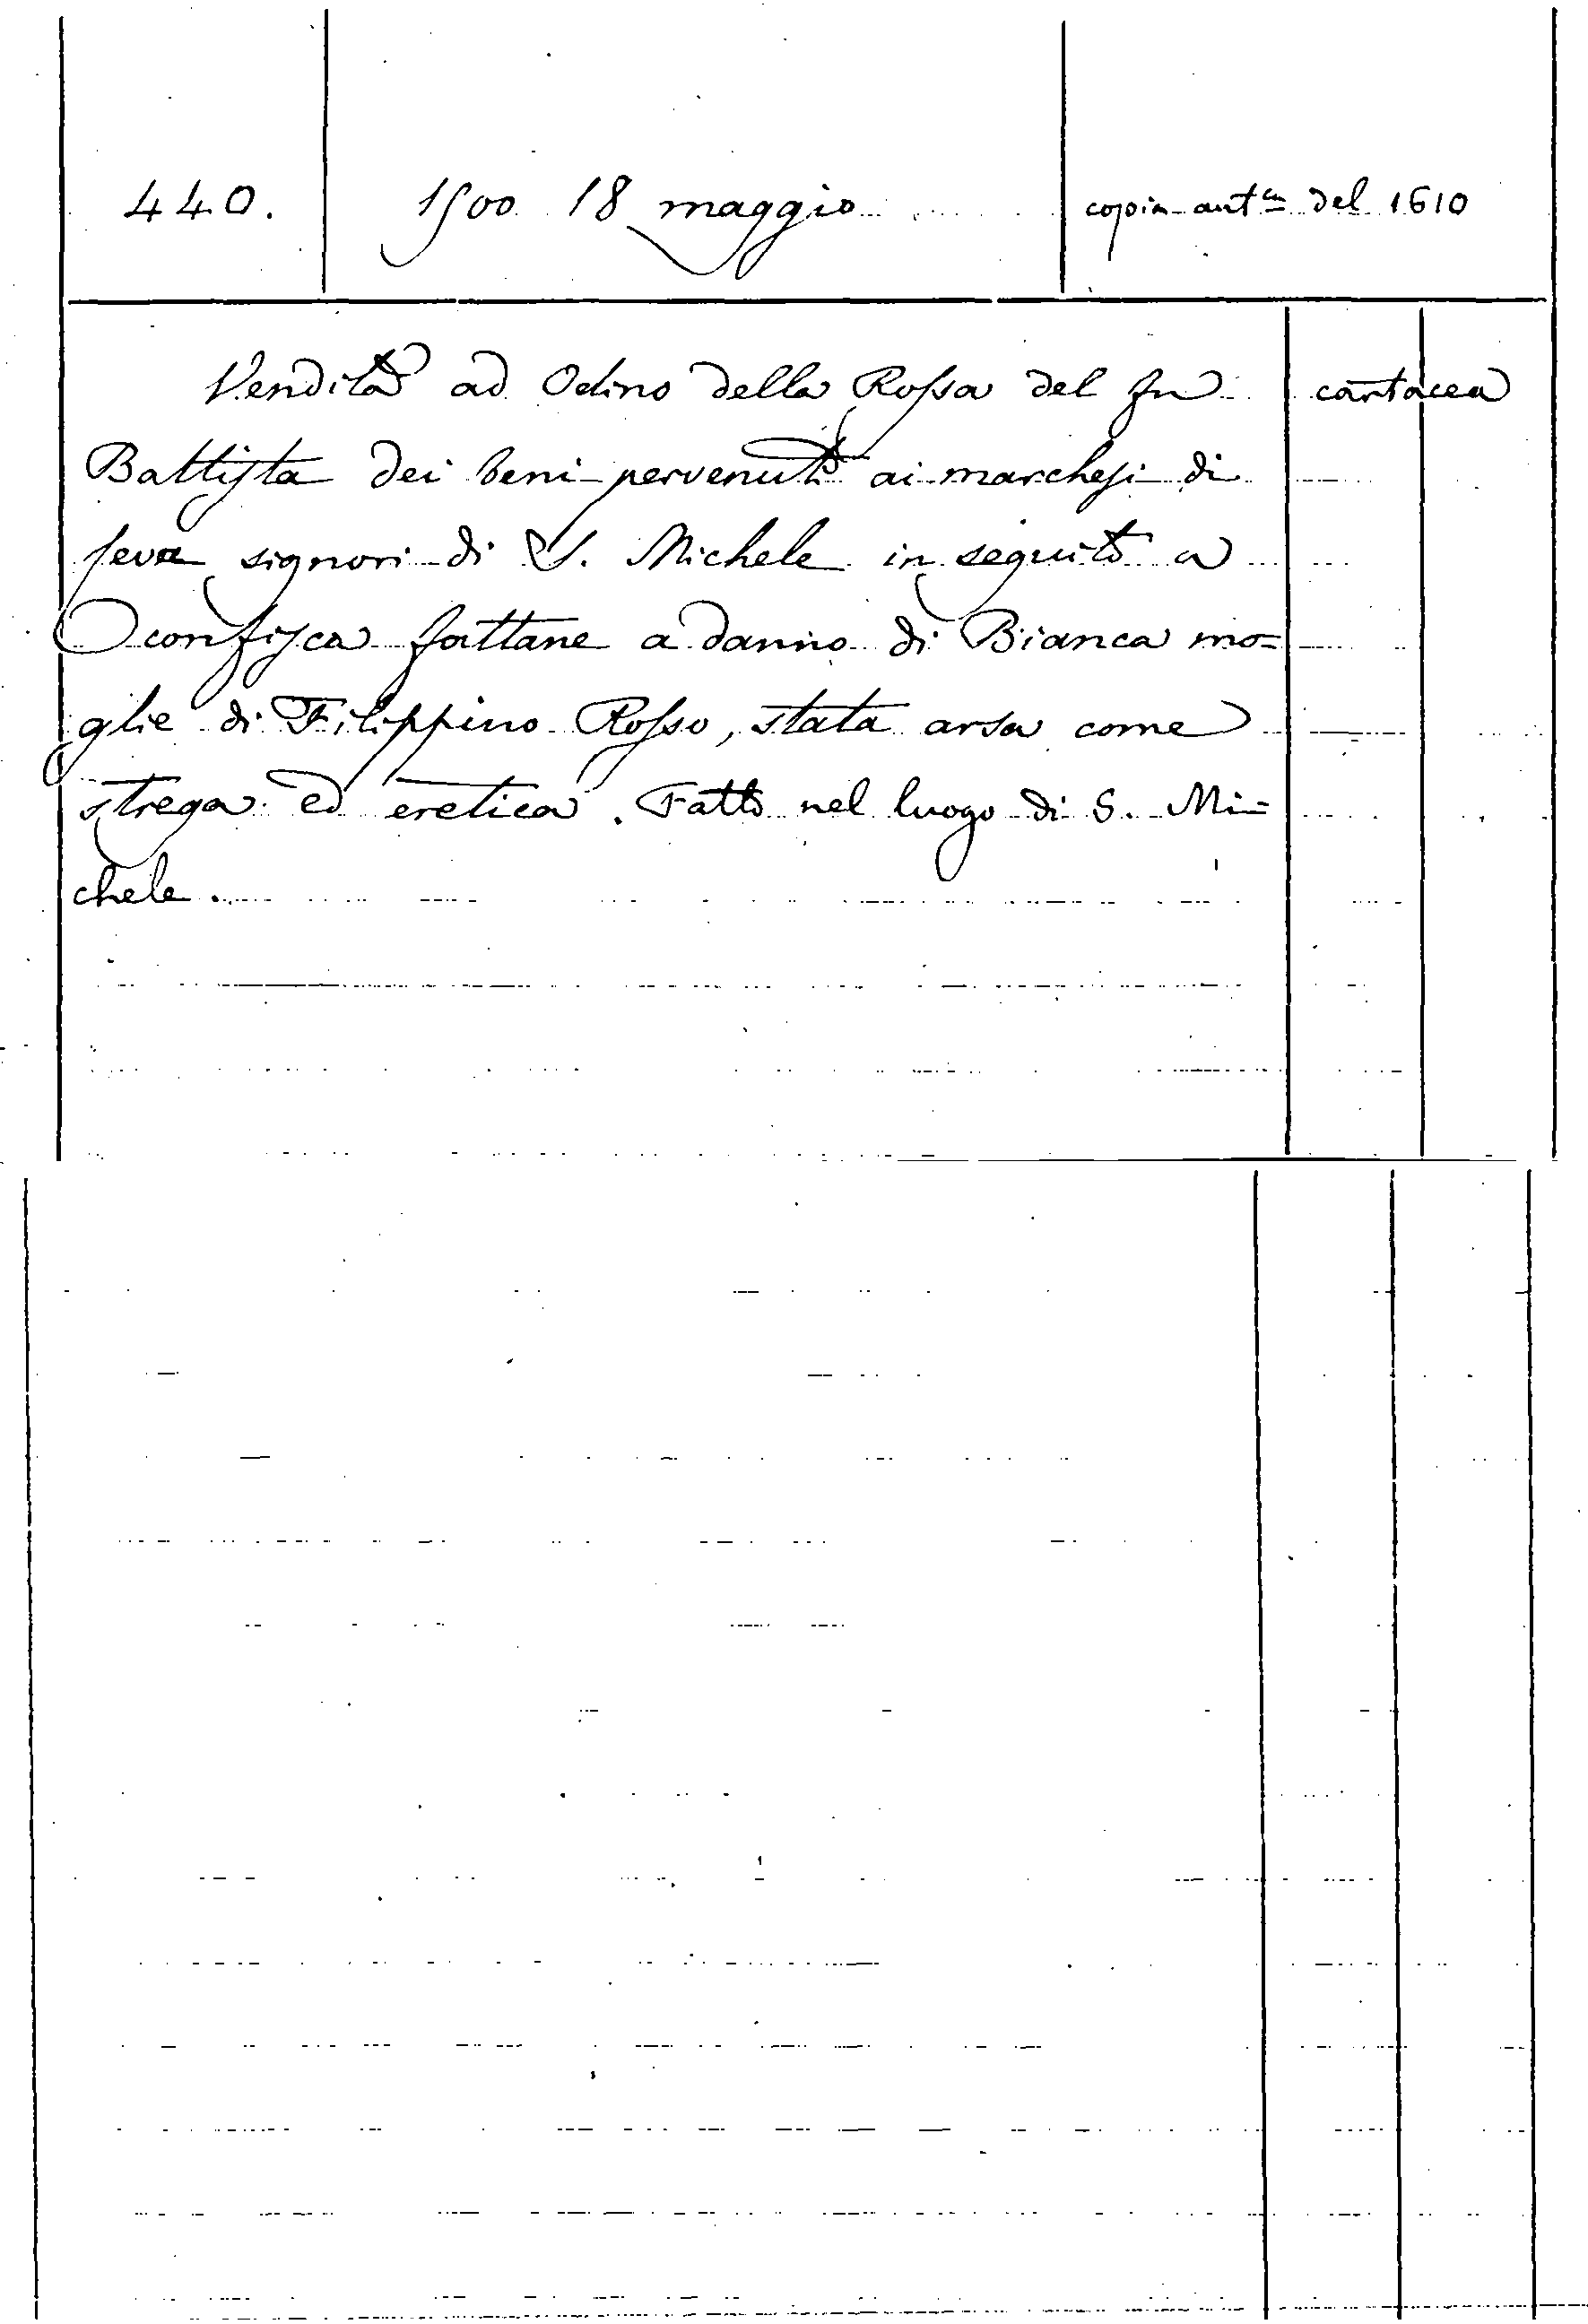 440.
1500 18 maggio
copia aut.ca del 1610
Vendita ad Odino della Rossa del fu
cartacea
Battista dei beni pervenuti ai marchesi di
Ceva signori di S. Michele in seguito a
confisca fattane a danno di Bianca mo=
glie di Filippino Rosso, stata arsa come
strega ed eretica. Fatto nel luogo di S. Mi=
chele.